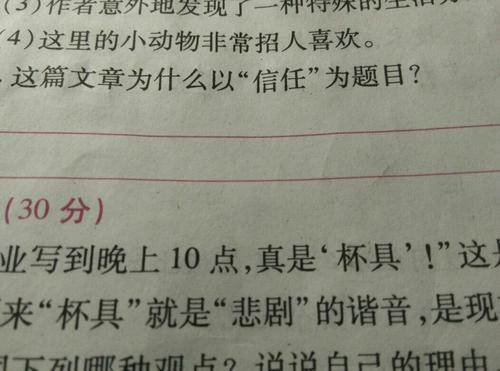 (3)作者意外地发现了一种特殊的生活
(4)这里的小动物非常招人喜欢。
这篇文章为什么以“信任”为题目?
(30分)
业写到晚上10点,真是‘杯具’!”这是
来“杯具”就是“悲剧”的谐音,是现
下列哪种观点?说说自己的理由